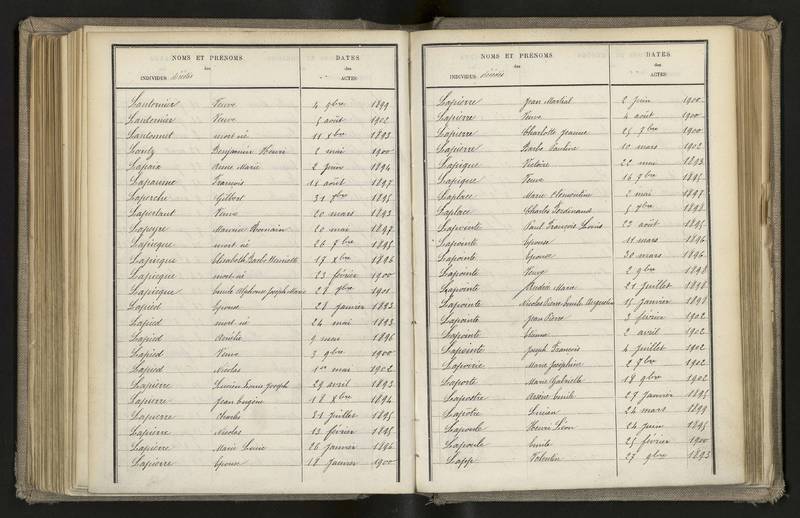 NOMS ET PRÉNOMS
DATES
des
des
INDIVIDUS décédés
ACTES
Lanternier Veuve 4 9bre 1899
Lanternier Veuve 5 août 1902
mort né 11 Xbre 1893
Lontz Benjamin Henri 2 mai 1900
Lapaix Anne Marie 2 juin 1894
François 11 août 1897
Laperche Gilbert 31 1895
Veuve 20 mars 1893
Lapeyre Maurice Romain 20 mai 1897
Lapicque mort né 26 7bre 1895
Lapicque Elisabeth Barbe Henriette 17 Xbre 1896
Lapicque mort né 23 février 1900
Lapicque Emile Alphonse Joseph Marie 28 9bre 1901
Lapied Epouse 28 janvier 1893
Lapied mort né 24 mai 1893
Lapied Aurélie 9 mars 1896
Lapied Veuve 3 9bre 1900
Lapied Nicolas 1er mai 1902
Lapierre Lucien Louis Joseph 29 avril 1893
Lapierre Jean Eugène 18 Xbre 1894
Lapierre Charles 31 juillet 1895
Lapierre Nicolas 13 février 1895
Lapierre Marie Louise 26 janvier 1896
Lapierre Epouse 18 janvier 1900
NOMS ET PRÉNOMS
DATES
des
des
INDIVIDUS décédés
ACTES
Lapierre Jean Martial 2 juin 1900
Lapierre Veuve 4 août 1900
Lapierre Charlotte Jeanne 25 7bre 1900
Lapierre Barbe Pauline 10 mars 1902
Lapique Victoire 22 mai 1893
Lapique Veuve 14 9bre 1895
Laplace Marie Clémentine 2 mai 1897
Laplace Charles Ferdinand 5 1898
Lapointe Paul François Louis 22 août 1895
Lapointe Epouse 11 mars 1896
Lapointe Epouse 30 mars 1896
Lapointe Veuve 2 9bre 1898
Lapointe Andrée Marie 21 juillet 1898
Lapointe Nicolas Pierre Emile Augustin 15 janvier 1898
Lapointe Jean Pierre 3 février 1902
Lapointe Etienne 2 avril 1902
Lapointe Joseph François 4 juillet 1902
Marie Joséphine 2 7bre 1902
Laporte Marie Gabrielle 18 9bre 1902
Lapostre Arsène Emile 27 janvier 1895
Lapôtre Lucien 24 mars 1899
Henri Léon 24 juin 1895
Emile 25 février 1900
Lapp Valentin 27 9bre 1893